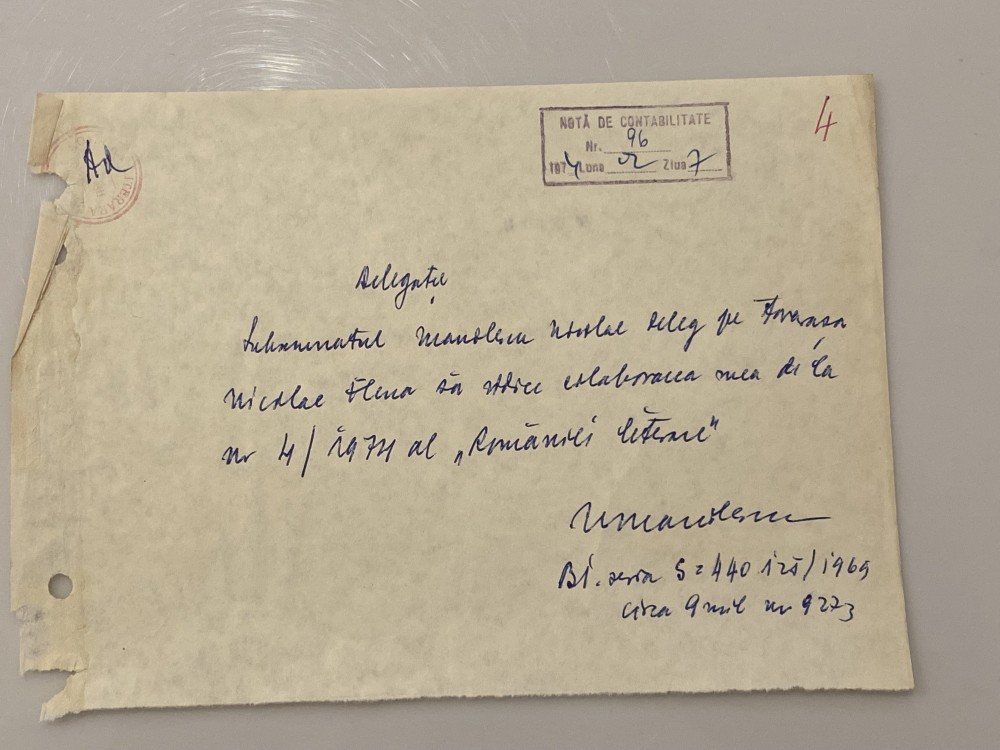 Ad
NOTĂ DE CONTABILITATE
Nr. 96
1974 Luna Ziua 7
4
Delegație
Subsemnatul Manolescu Nicolae deleg pe Tovarășa
Nicolae Elena să ridice colaborarea mea de la
nr 4/1974 al „României literare"
NManolescu
BI. seria S= 440 125/1969
circa 9 mil nr 9273